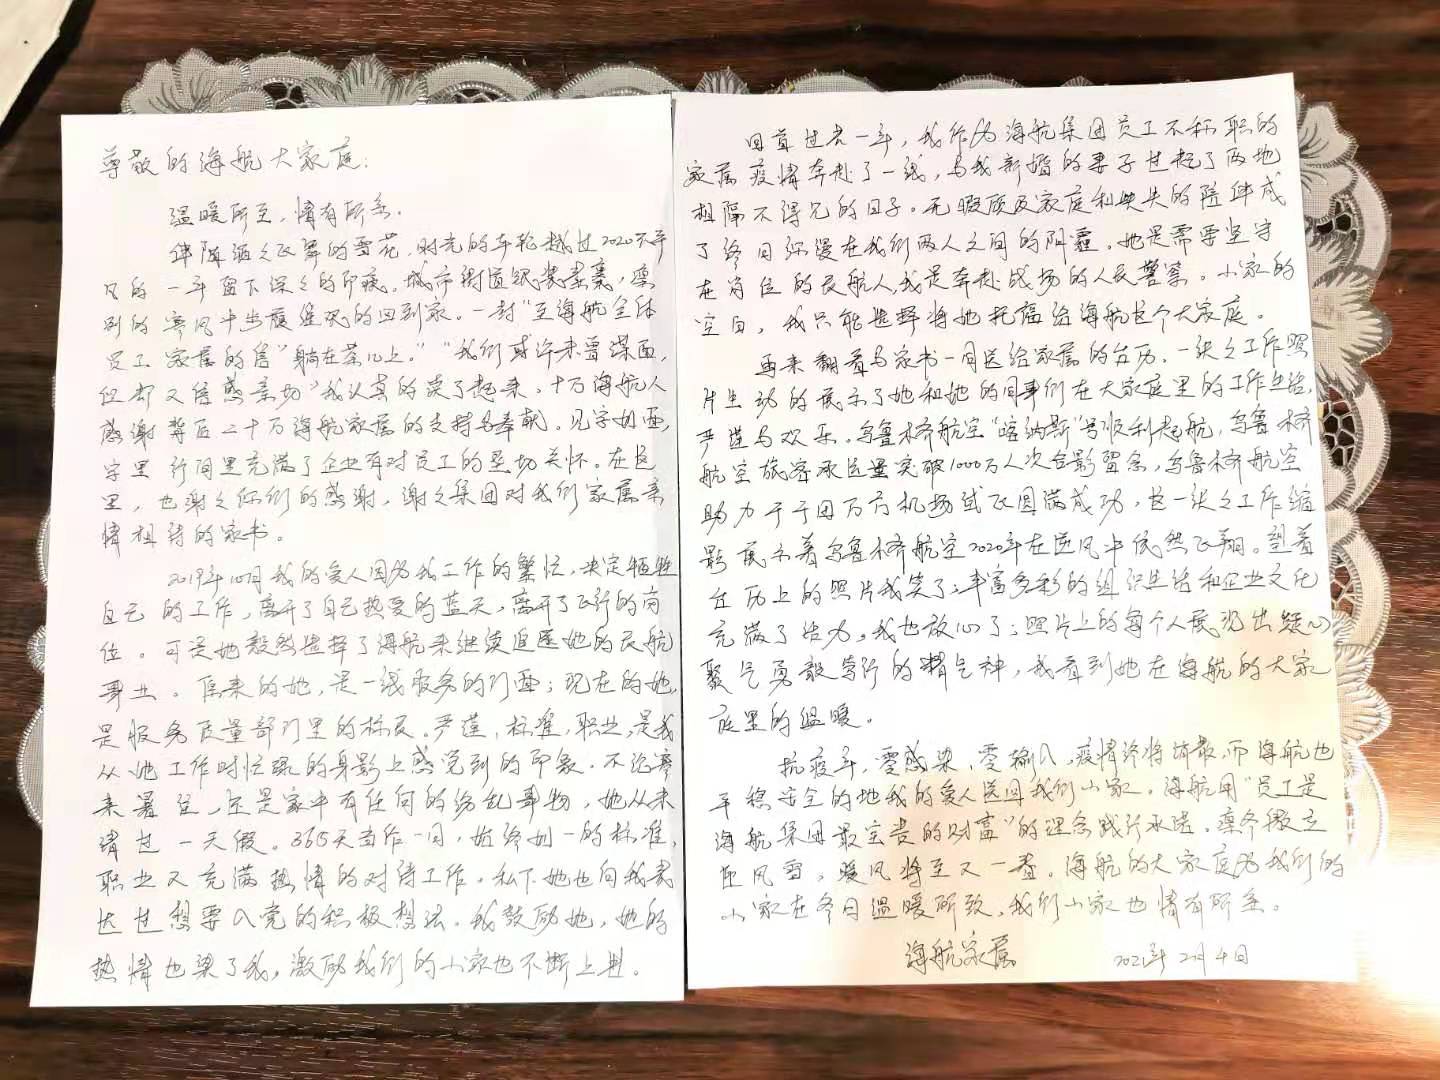 尊敬的海航大家庭：
温暖所至，情有所系.
伴随洒洒飞舞的雪花，时光的车轮越过2020不平
凡的一年留下深深的印痕。城市街道银装素裹，凛
冽的寒风中步履维艰的回到家。一封“至海航全体
员工家属的信”躺在茶几上。“我们或许未曾谋面，
但却又倍感亲切”我认真的读了起来，十万海航人
感谢背后二十万海航家属的支持与奉献。见字如面，
字里行间里充满了企业有对员工的垦切关怀。在这
里，也谢谢你们的感谢，谢谢集团对我们家属亲
情相待的家书。
2019年10月我的爱人因为我工作的繁忙，决定牺牲
自己的工作，离开了自己热爱的蓝天，离开了飞行的岗
位。可是她毅然选择了海航来继续追逐她的民航
事业。原来的她，是一线服务的门面；现在的她，
是服务质量部门里的标兵。严谨，标准，职业，是我
从她工作时忙碌的身影上感觉到的印象。不论寒
来暑往，还是家中有任何的纷乱事物，她从未
请过一天假。365天当作一日，始终如一的标准，
职业又充满热情的对待工作。私下她也向我表
达过想要入党的积极想法。我鼓励她，她的
热情也染了我，激励我们的小家也不断上进。
回首过去一年，我作为海航集团员工不称职的
家属疫情奔赴了一线，与我新婚的妻子过起了两地
相隔不得见的日子。无暇顾及家庭和缺失的陪伴成
了终日弥漫在我们两人之间的阴霾。她是需要坚守
在岗位的民航人，我是奔赴战场的人民警察。小家的
空白，我只能选择将她托福给海航这个大家庭。
再来翻看与家书一同送给家属的台历，一张张工作照
片生动的展示了她和她的同事们在大家庭里的工作生活，
严谨与欢乐。乌鲁木齐航空“喀纳斯”号顺利起航，乌鲁木齐
航空旅客承运量突破1000万人次合影留念，乌鲁木齐航空
助力于于田万方机场试飞圆满成功，这一张张工作缩
影展示着乌鲁木齐航空2020年在逆风中依然飞翔。望着
台历上的照片我笑了；丰富多彩的组织生活和企业文化
充满了活力。我也放心了；照片上的每个人展现出凝心
聚气勇毅笃行的精气神，我看到她在海航的大家
庭里的温暖。
抗疫年，零感染，零输入，疫情终将消散，而海航也
平稳安全的地我的爱人送回我们小家。海航用“员工是
海航集团最宝贵的财富”的理念践行承诺。凛冬傲立
迎风雪，暖风将至又一春。海航的大家庭为我们的
小家在冬日温暖所致，我们小家也情有所系。
海航家属 2021年2月4日